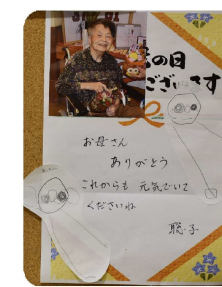 の日
ございます
お母さん
ありがとう
これからも 元気でいて
くださいね
聡子